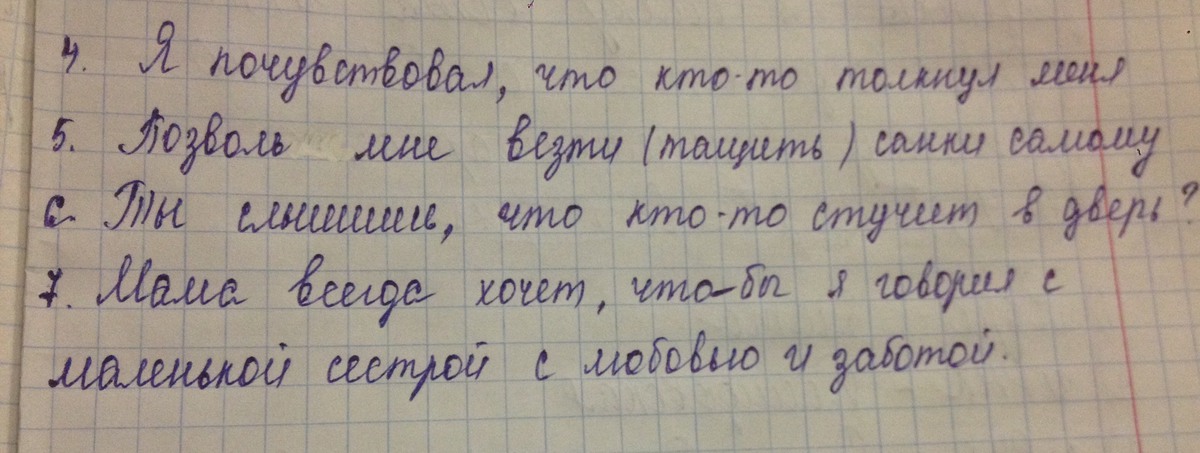 4. Я почувствовал, что кто-то толкнул меня
5. Позволь мне везти (тащить) санки самому
6. Ты слышишь, что кто-то стучит в дверь?
7. Мама всегда хочет, что-бы я говорил с
маленькой сестрой с любовью и заботой.